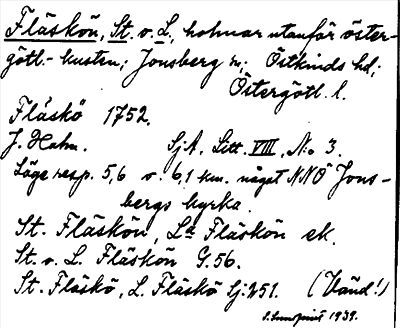 Fläskön, St. o. L., holmar utanför öster-
götl.-kusten; Jonsberg sn; Östkinds hd;
Östergötl. l.
Fläskö 1752.
J. Hahn. SjA. Litt. VIII, No 3.
Läge resp. 5,6 o. 6,1 km. något NNÖ Jons-
bergs kyrka.
St. Fläskön, La Fläskön ek.
St. o. L. Fläskön G. 56.
St. Fläskö, L. Fläskö Sj. 251. (Vänd!)
1939.